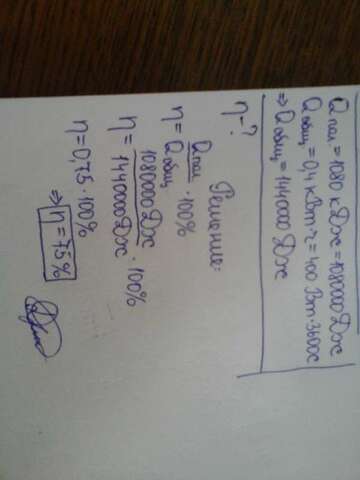 Qпол = 1080 кДж = 1080000Дж
Qобщ = 0,4 кВт·ч = 400 Вт·3600с
⇒ Qобщ = 1440000 Дж
η-?
Решение:
η = Qпол/Qобщ · 100%
η = 1080000Дж/1440000Дж · 100%
η = 0,75 · 100%
⇒ η = 75%